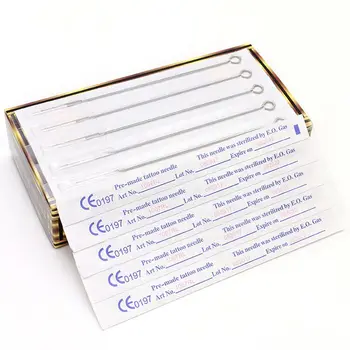 Pre-made tattoo needle This needle was sterilized by E.O. Gas
CE0197 Art No. Lot No. Expire on
Pre-made tattoo needle This needle was sterilized by E.O. Gas
CE0197 Art No. Lot No. Expire on
Pre-made tattoo needle This needle was sterilized by E.O. Gas
CE0197 Art No. Lot No. Expire on
Pre-made tattoo needle This needle was sterilized by E.O. Gas
CE0197 Art No. Lot No. Expire on
Pre-made tattoo needle This needle was sterilized by E.O. Gas
CE0197 Art No. Lot No. Expire on